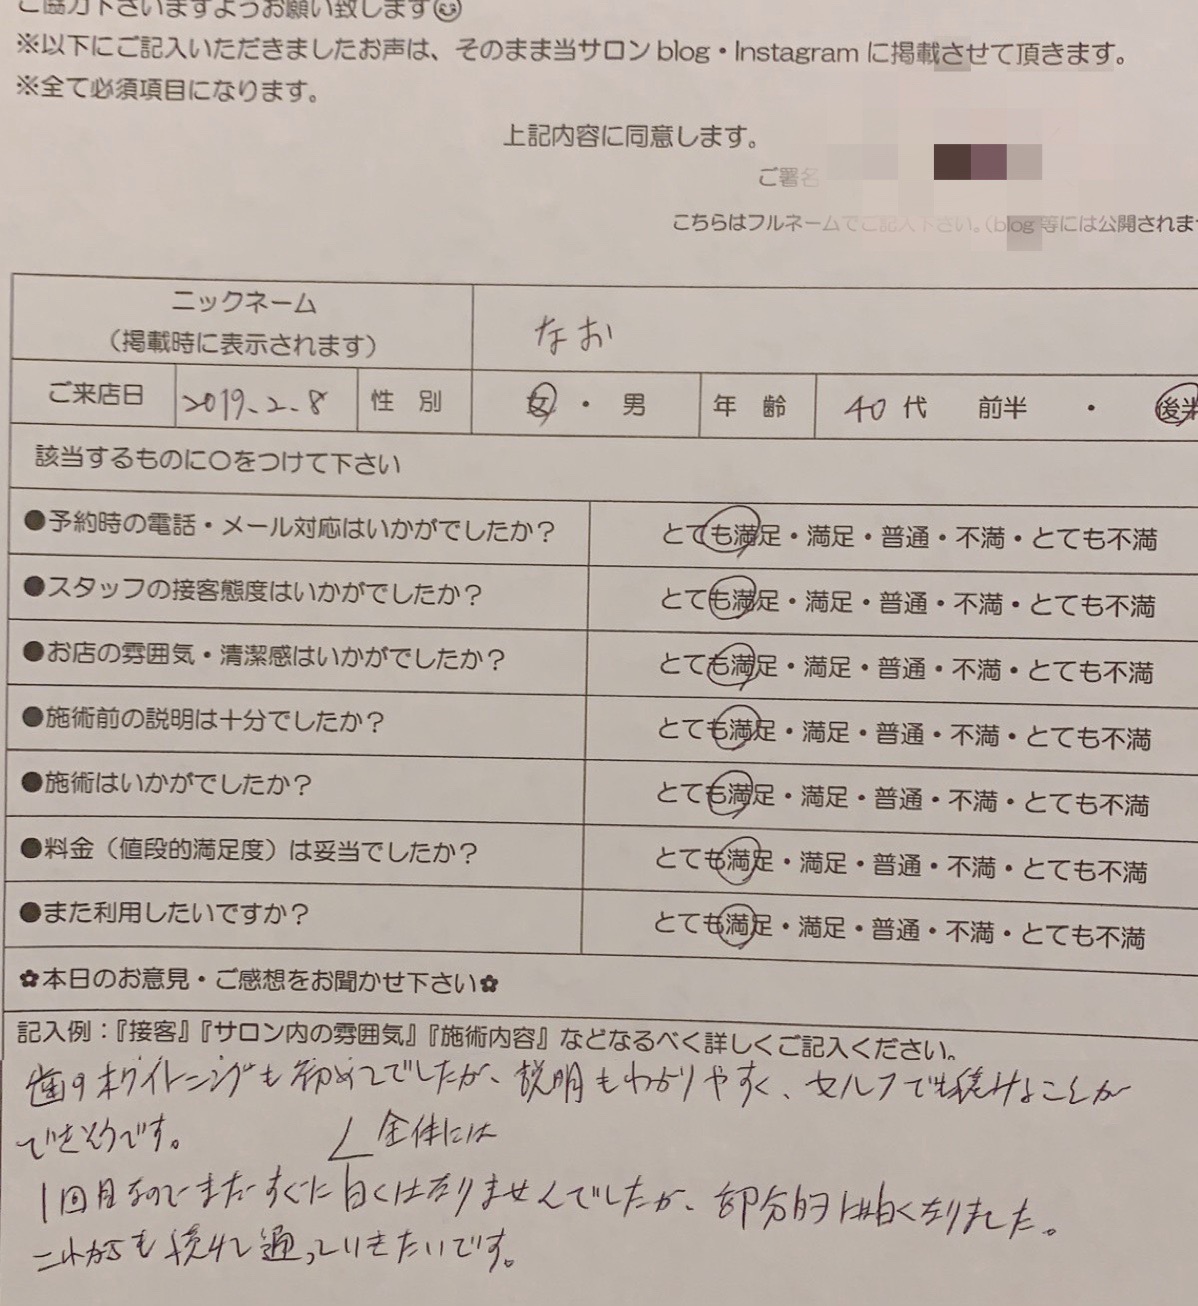 ご協力下さいますようお願い致します
※以下にご記入いただきましたお声は、そのまま当サロンblog・Instagramに掲載させて頂きます。
※全て必須項目になります。
上記内容に同意します。
ご署名
こちらはフルネームでご記入下さい。(blog等には公開されませ
ニックネーム
(掲載時に表示されます)
なお
ご来店日 2019.2.8 性 別 女 ・ 男 年 齢 40代 前半 ・ 後半
該当するものに〇をつけて下さい
●予約時の電話・メール対応はいかがでしたか? とても満足・満足・普通・不満・とても不満
●スタッフの接客態度はいかがでしたか? とても満足・満足・普通・不満・とても不満
●お店の雰囲気・清潔感はいかがでしたか? とても満足・満足・普通・不満・とても不満
●施術前の説明は十分でしたか? とても満足・満足・普通・不満・とても不満
●施術はいかがでしたか? とても満足・満足・普通・不満・とても不満
●料金(値段的満足度)は妥当でしたか? とても満足・満足・普通・不満・とても不満
●また利用したいですか? とても満足・満足・普通・不満・とても不満
✿本日のお意見・ご感想をお聞かせ下さい✿
記入例:『接客』『サロン内の雰囲気』『施術内容』などなるべく詳しくご記入ください。
歯のホワイトニングも初めてでしたが、説明もわかりやすく、セルフでも続けることが
できそうです。
全体には
1回目なのでまだすぐに白くはなりませんでしたが、部分的には白くなりました。
これからも続けて通っていきたいです。